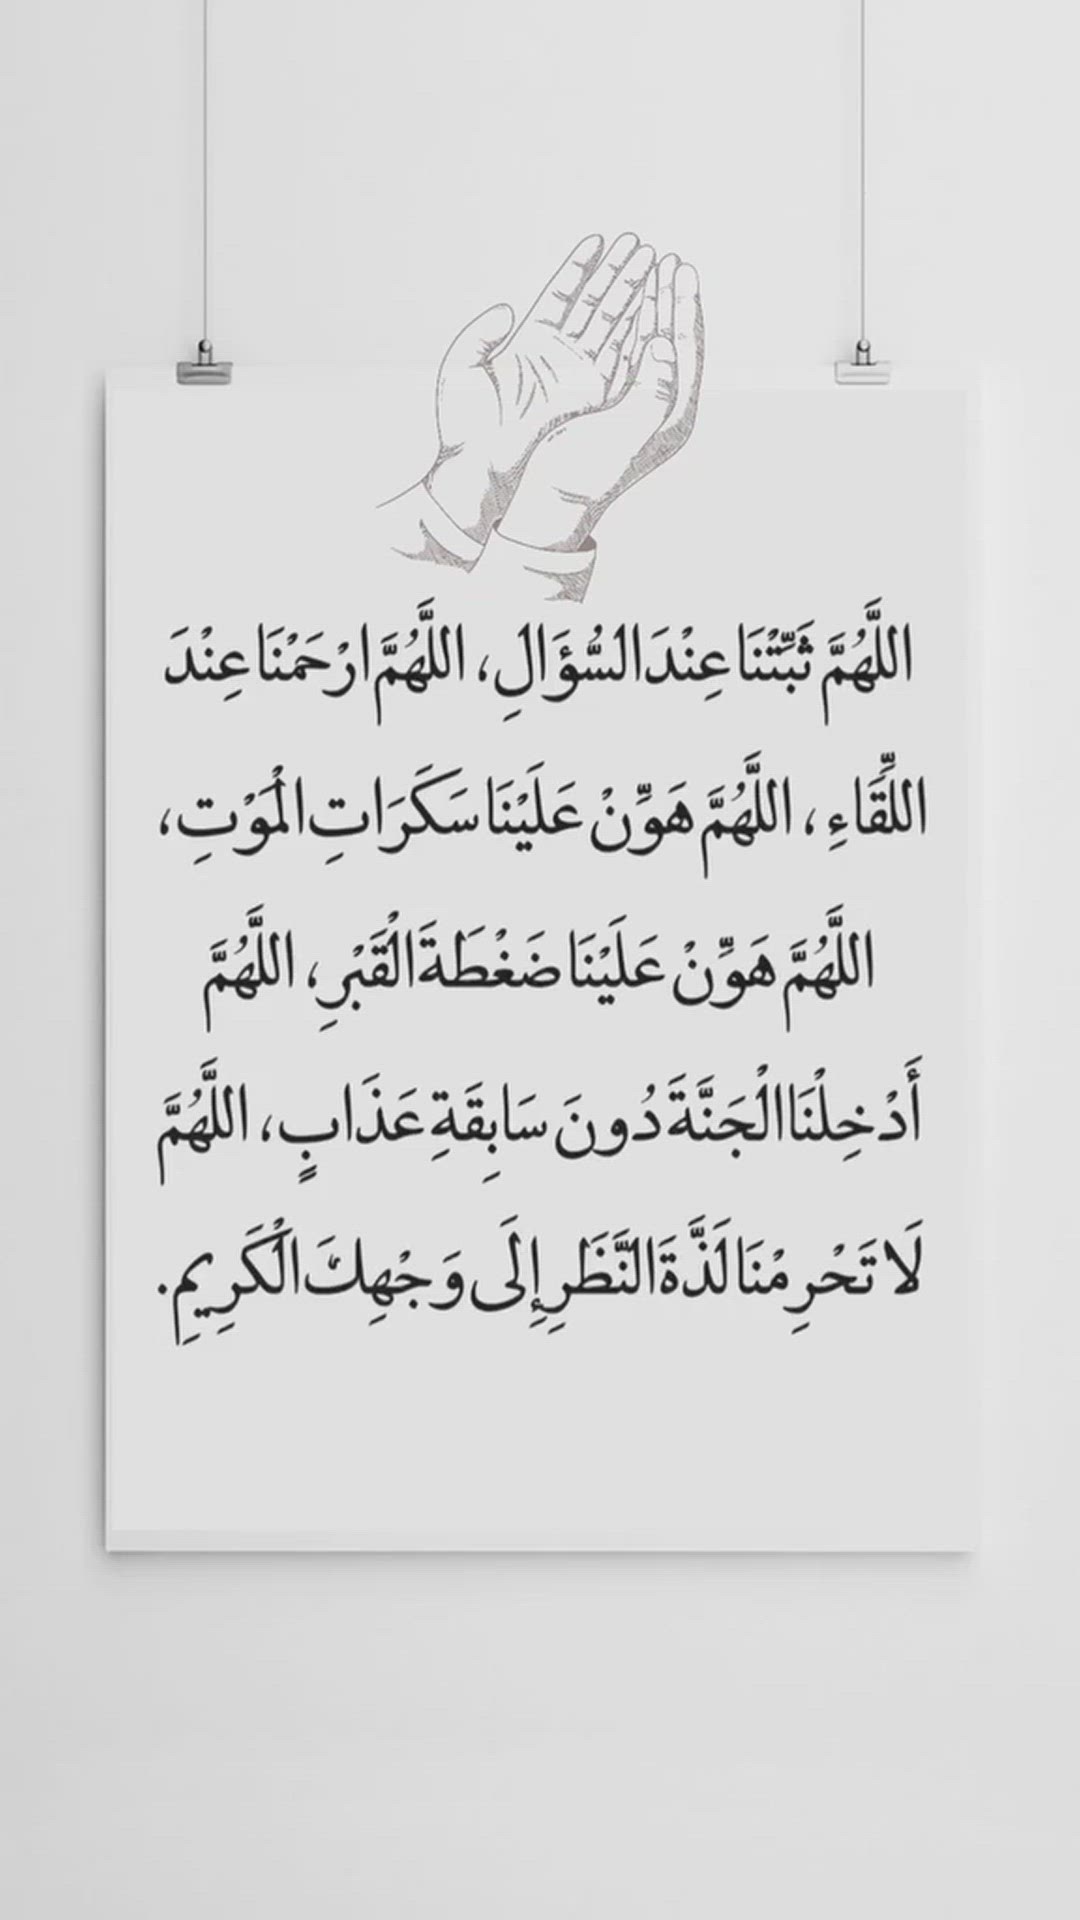 اللَّهُمَّ ثَبِّتْنَا عِنْدَ السُّؤَالِ، اللَّهُمَّ ارْحَمْنَا عِنْدَ
اللِّقَاءِ، اللَّهُمَّ هَوِّنْ عَلَيْنَا سَكَرَاتِ الْمَوْتِ،
اللَّهُمَّ هَوِّنْ عَلَيْنَا ضَغْطَةَ الْقَبْرِ، اللَّهُمَّ
أَدْخِلْنَا الْجَنَّةَ دُونَ سَابِقَةِ عَذَابٍ، اللَّهُمَّ
لَا تَحْرِمْنَا لَذَّةَ النَّظَرِ إِلَى وَجْهِكَ الْكَرِيمِ.